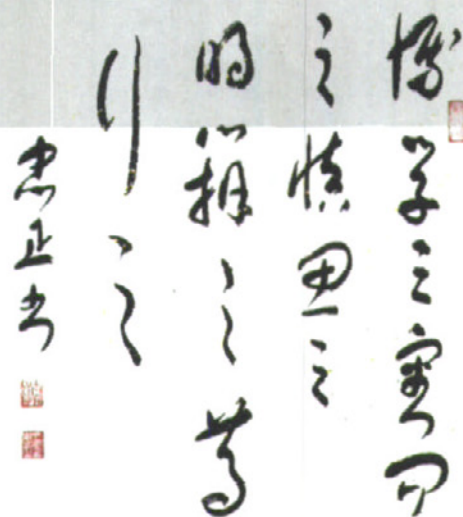 博学之审问
之慎思之
明辨之笃
行之
忠正书